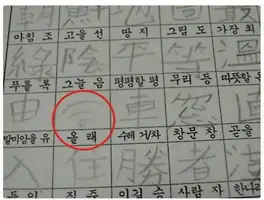 朝 鮮 地 圖
아침 조 고을 선 땅 지 그림 도 가장 최
綠 陰 平 等 溫
푸를 록 그늘 음 평평할 평 무리 등 따뜻할
由 車 窓
말미암을 유 올 래 수레 거/차 창문 창 공을
入 住 勝 者
이길 승 사람 자 한나라